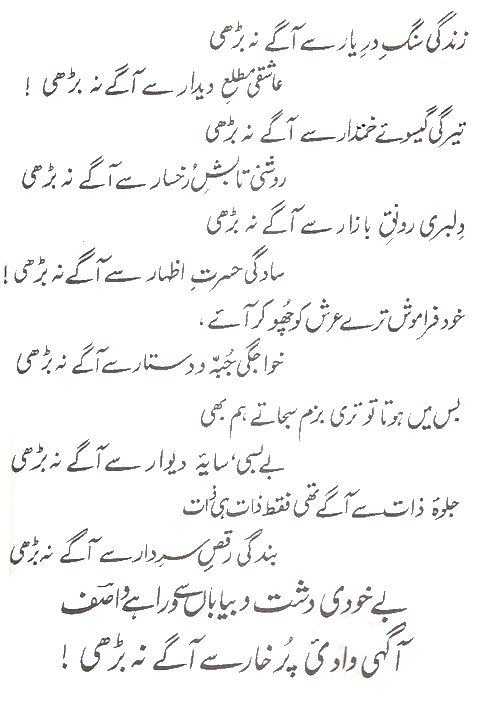 زندگی سنگِ درِ یار سے آگے نہ بڑھی
عاشقی مطلعِ دیدار سے آگے نہ بڑھی !
تیرگی گیسوئے خمدار سے آگے نہ بڑھی
روشنی تابشِ رُخسار سے آگے نہ بڑھی
دِلبری رونقِ بازار سے آگے نہ بڑھی
سادگی حسرتِ اظہار سے آگے نہ بڑھی !
خود فراموش ترے عرش کو چُھو کر آئے ،
خواجگی جُبّہ و دستار سے آگے نہ بڑھی
بس میں ہوتا تو تری بزم سجاتے ہم بھی
بے بسی، سایۂ دیوار سے آگے نہ بڑھی
جلوۂ ذات سے آگے تھی فقط ذات ہی ذات
بندگی رقصِ سرِ دار سے آگے نہ بڑھی
بے خودی دشت و بیاباں سے ورا ہے واصفؔ
آگہی وادیٔ پُر خار سے آگے نہ بڑھی !